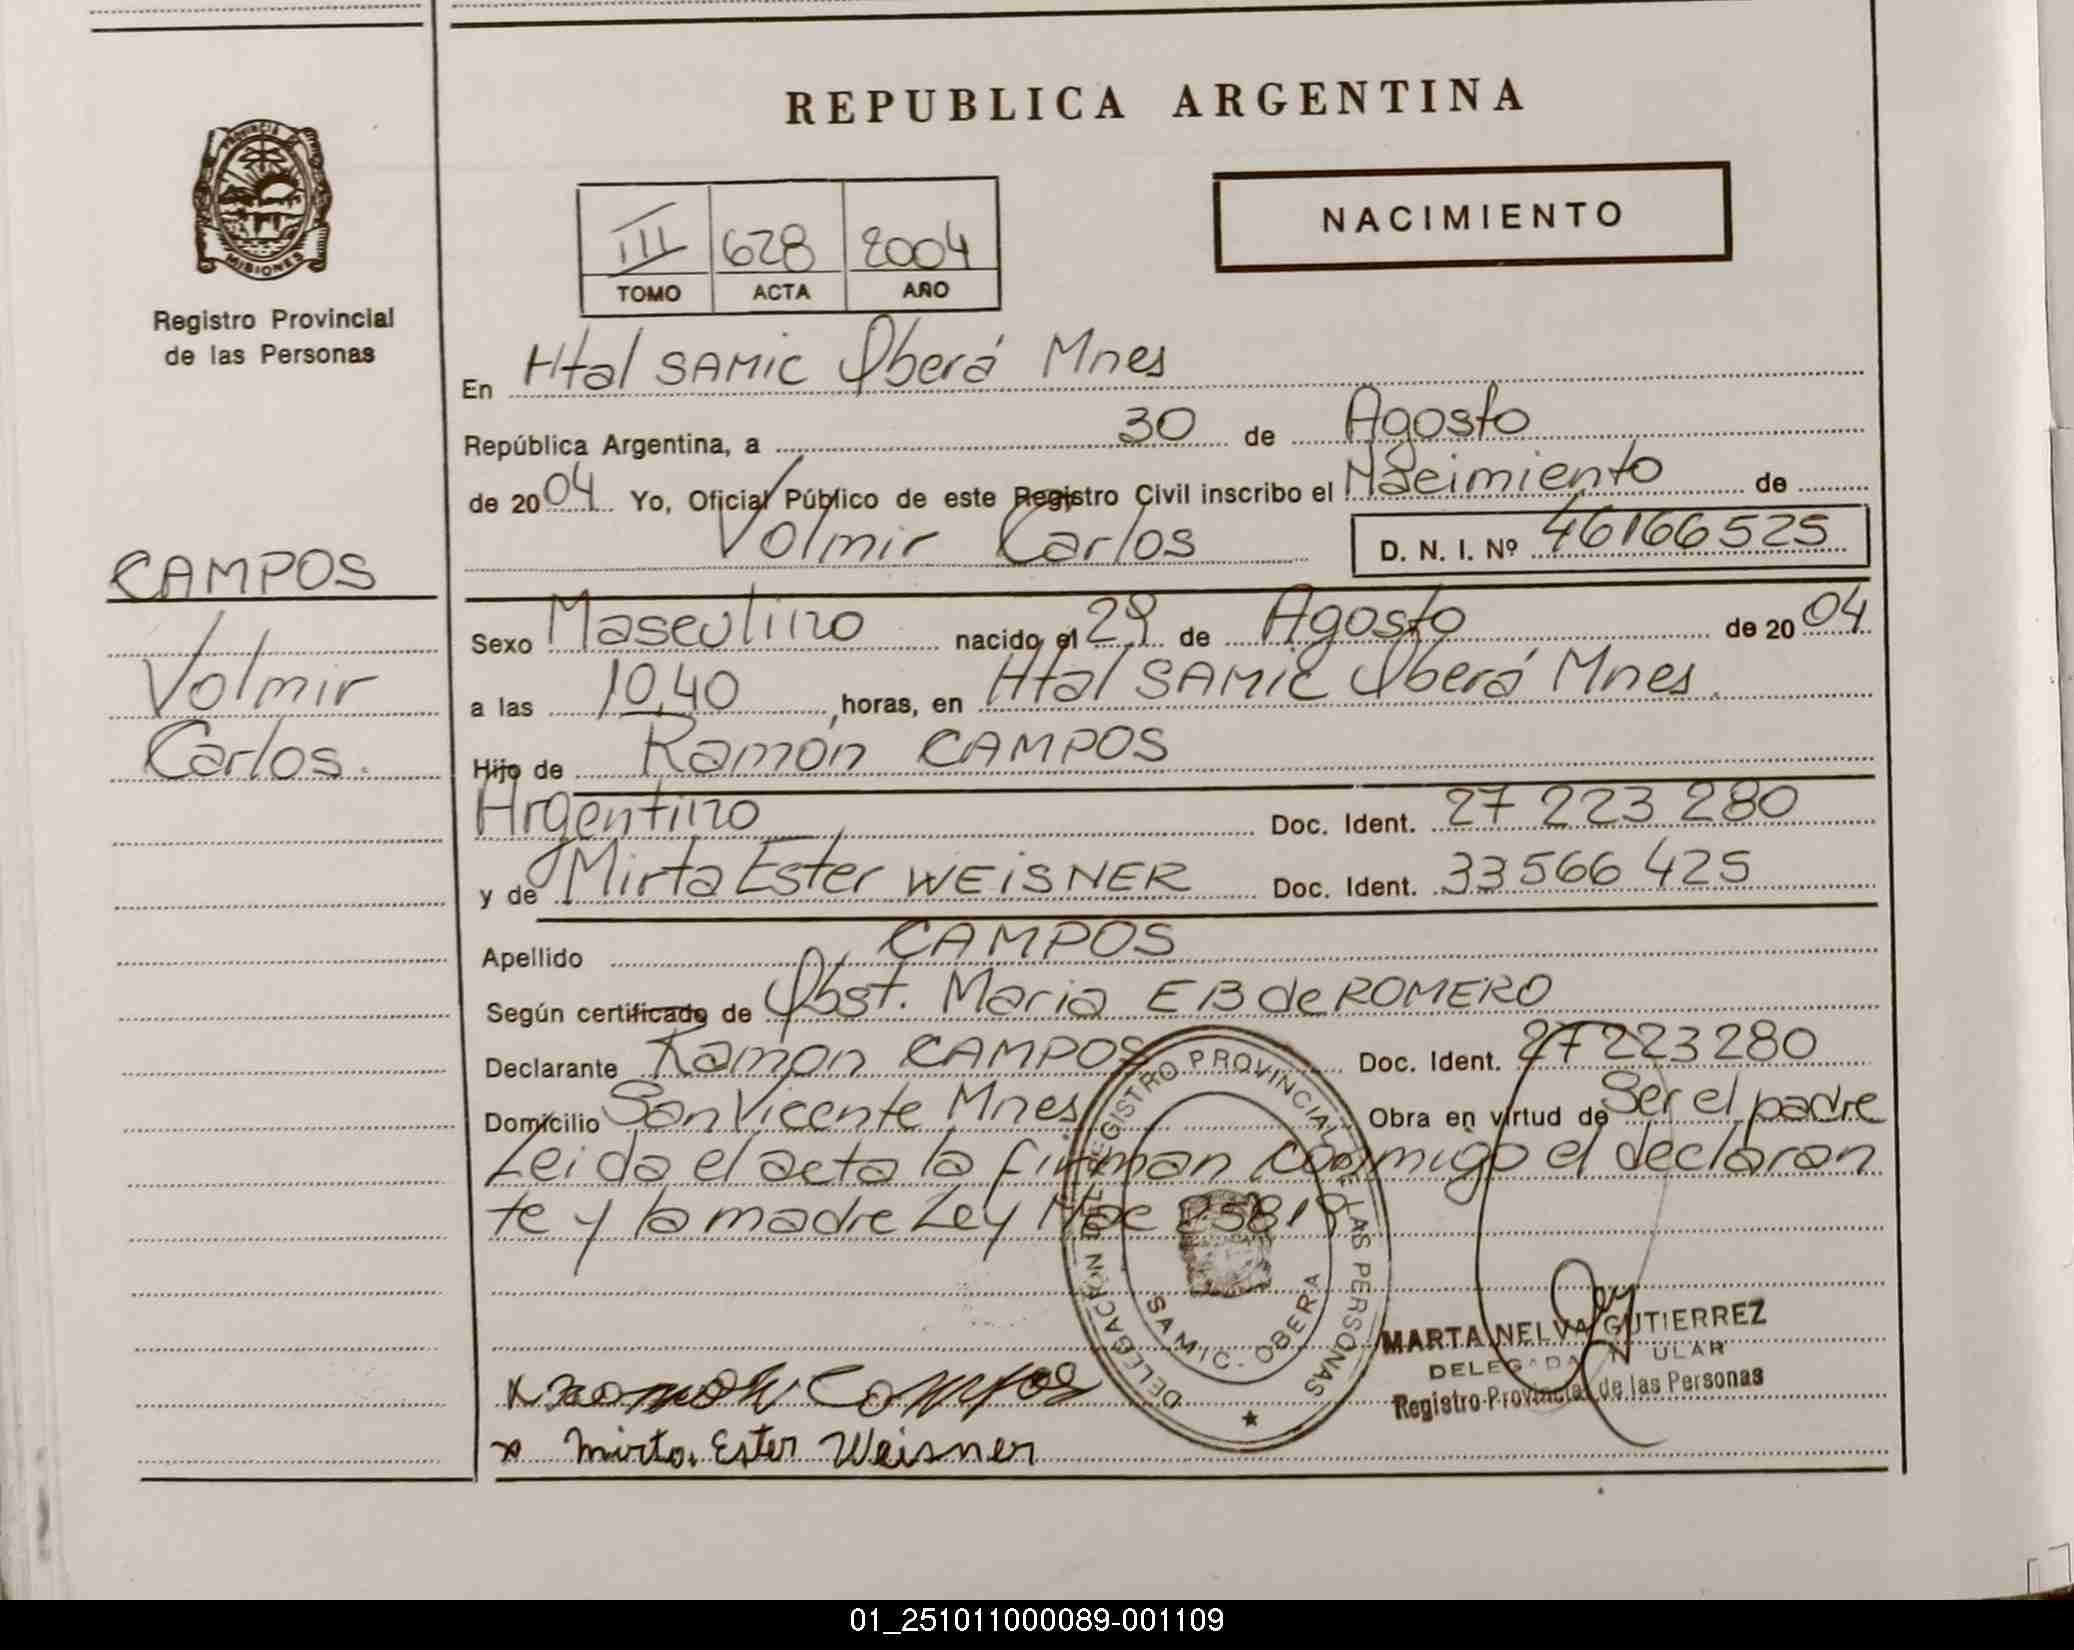 REPUBLICA ARGENTINA
PROVINCIA DE
MISIONES
Registro Provincial
de las Personas
NACIMIENTO
III 628 2004
TOMO ACTA AÑO
En Htal SAMIC Oberá Mnes
República Argentina, a 30 de Agosto
de 2004 Yo, Oficial Público de este Registro Civil inscribo el Nacimiento de
Volmir Carlos D. N. I. Nº 46166525
CAMPOS
Volmir
Carlos.
Sexo Masculino nacido el 29 de Agosto de 2004
a las 10,40 horas, en Htal SAMIC Oberá Mnes.
Hijo de Ramón CAMPOS
Argentino Doc. Ident. 27 223 280
y de Mirta Ester WEISNER Doc. Ident. 33 566 425
Apellido CAMPOS
Según certificado de Obst. Maria E B de ROMERO
Declarante Ramon CAMPOS Doc. Ident. 27223280
Domicilio San Vicente Mnes Obra en virtud de Ser el padre
Leida el acta la firman conmigo el declaran
te y la madre Ley Nac 25819
DELEGACION DEL REGISTRO PROVINCIAL DE LAS PERSONAS
SAMIC. OBERA
MARTA NELVA GUTIERREZ
DELEGADA TITULAR
Registro Provincial de las Personas
x Ramon Campos
x Mirta Ester Weisner
01_251011000089-001109